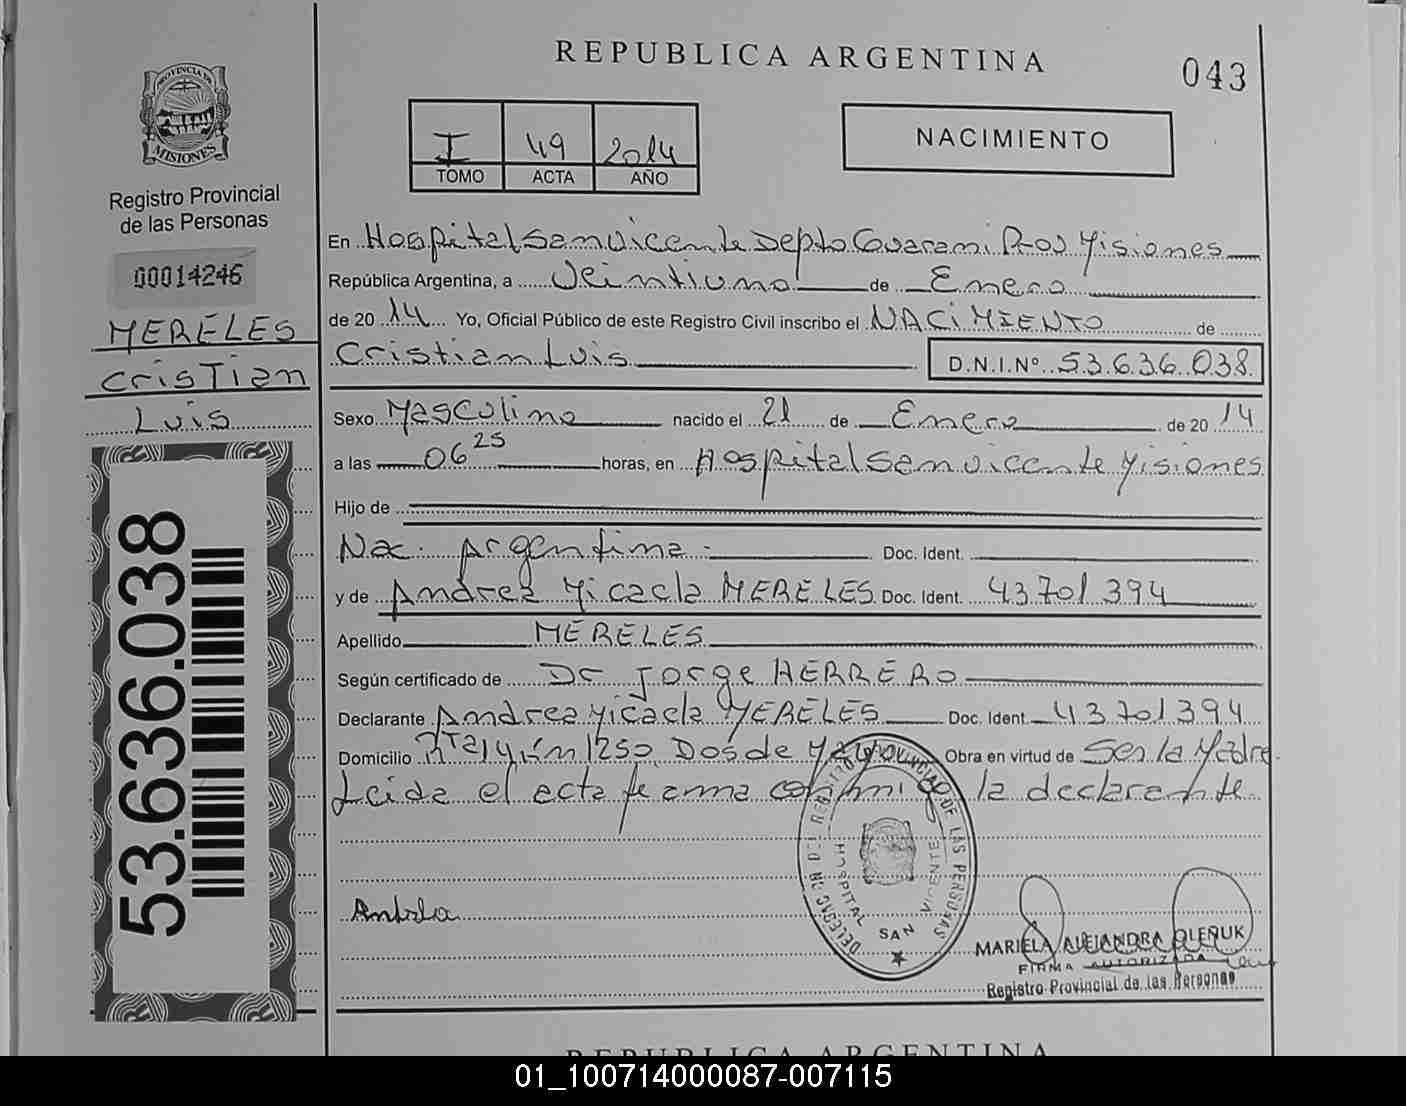 REPUBLICA ARGENTINA
043
PROVINCIA DE MISIONES
Registro Provincial
de las Personas
00014246
MERELES
Cristian
Luis
53.636.038
I 49 2014
TOMO ACTA AÑO
NACIMIENTO
En Hospital San Vicente Depto Guarani Prov Misiones
República Argentina, a Veintiuno de Enero
de 2014 Yo, Oficial Público de este Registro Civil inscribo el NACIMIENTO de
Cristian Luis D.N.I.Nº 53.636.038
Sexo Masculino nacido el 21 de Enero de 2014
a las 06 25 horas, en Hospital San Vicente Misiones
Hijo de
Nac. Argentina Doc. Ident.
y de Andrea Micaela MERELES Doc. Ident. 43701394
Apellido MERELES
Según certificado de Dr Jorge HERRERO
Declarante Andrea Micaela MERELES Doc. Ident 43701394
Domicilio 1250, Dos de Mayo Obra en virtud de Ser la Madre
Leida el acta firma conmigo la declarante.
DELEGAC. NO DEL REGISTRO PROVINCIAL DE LAS PERSONAS
HOSPITAL SAN VICENTE
MARIELA ALEJANDRA OLEÑUK
FIRMA AUTORIZADA
Registro Provincial de las Personas
REPUBLICA ARGENTINA
01_100714000087-007115